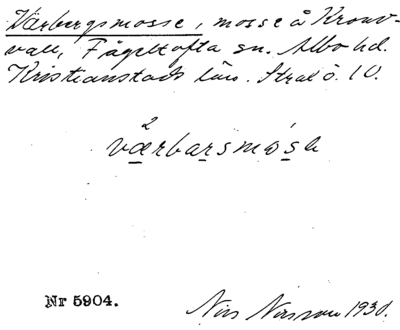 Värbergsmosse, mosse å Kron-
vall, Fågeltofta sn. Albo hd.
Kristianstads län. Stral ö. 10.
2
värbarsmósa
Nr 5904.
Nils 1930.